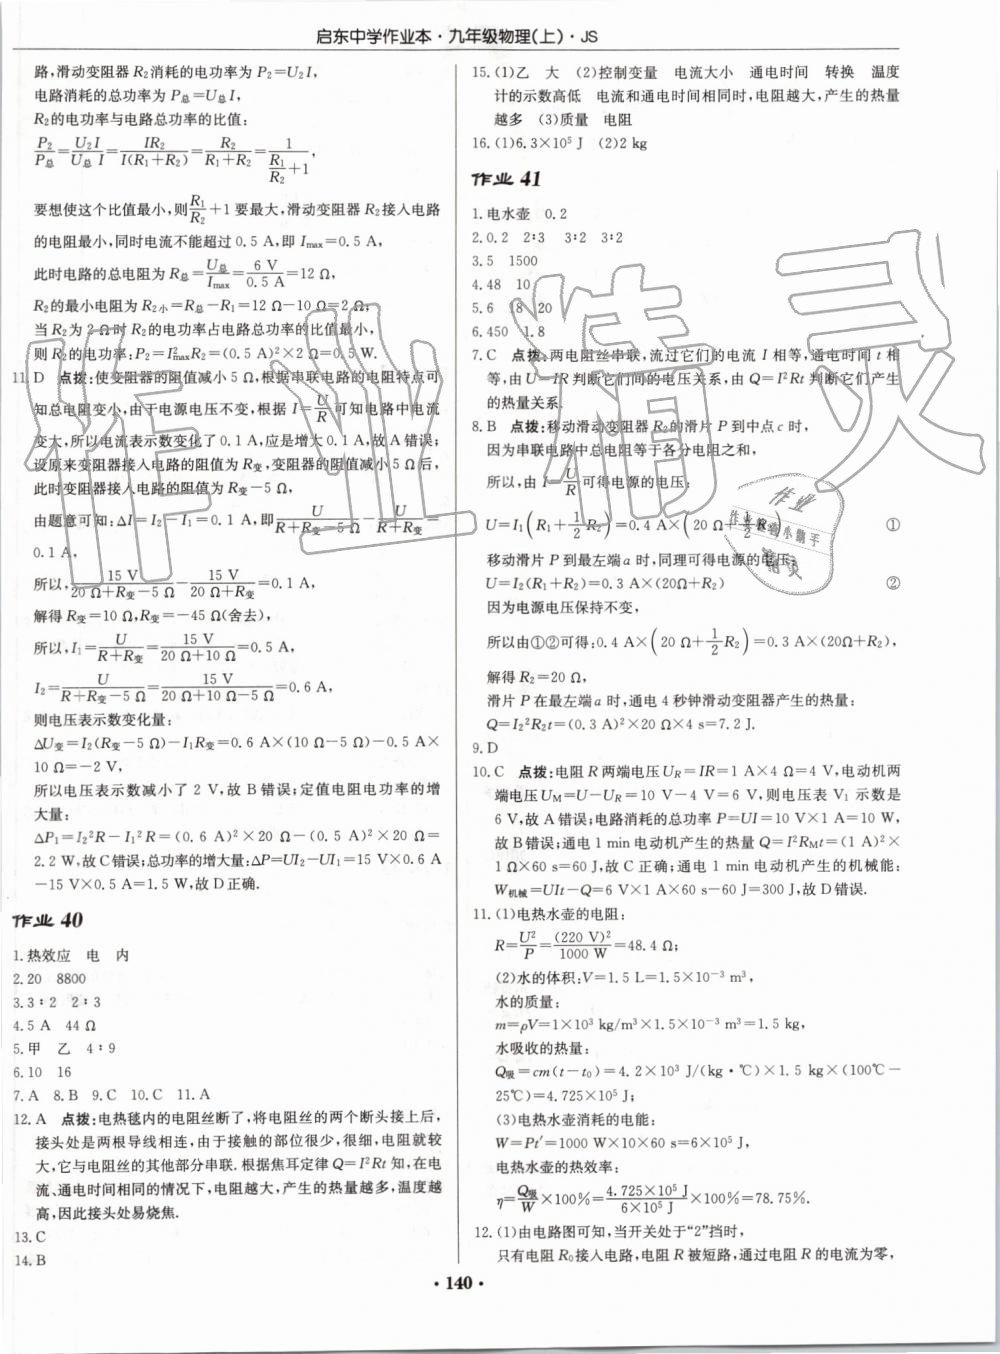 启东中学作业本·九年级物理(上)·JS
路,滑动变阻器R₂消耗的电功率为P₂=U₂I,
电路消耗的总功率为P总=U总I,
R₂的电功率与电路总功率的比值:
P₂/P总=U₂I/U总I=IR₂/I(R₁+R₂)=R₂/(R₁+R₂)=1/(R₁/R₂+1),
要想使这个比值最小,则R₁/R₂+1要最大,滑动变阻器R₂接入电路
的电阻最小,同时电流不能超过0.5 A,即Imax=0.5 A,
此时电路的总电阻为R总=U总/Imax=6 V/0.5 A=12 Ω,
R₂的最小电阻为R₂小=R总-R₁=12 Ω-10 Ω=2 Ω;
当R₂为2 Ω时R₂的电功率占电路总功率的比值最小,
则R₂的电功率:P₂=I²maxR₂=(0.5 A)²×2 Ω=0.5 W.
11. D 点拨:使变阻器的阻值减小5 Ω,根据串联电路的电阻特点可
知总电阻变小,由于电源电压不变,根据I=U/R可知电路中电流
变大,所以电流表示数变化了0.1 A,应是增大0.1 A,故A错误;
设原来变阻器接入电路的阻值为R变,变阻器的阻值减小5 Ω后,
此时变阻器接入电路的阻值为R变-5 Ω,
由题意可知:ΔI=I₂-I₁=0.1 A,即U/(R+R变-5 Ω)-U/(R+R变)=
0.1 A,
所以,15 V/(20 Ω+R变-5 Ω)-15 V/(20 Ω+R变)=0.1 A,
解得R变=10 Ω,R变=-45 Ω(舍去),
所以,I₁=U/(R+R变)=15 V/(20 Ω+10 Ω)=0.5 A,
I₂=U/(R+R变-5 Ω)=15 V/(20 Ω+10 Ω-5 Ω)=0.6 A,
则电压表示数变化量:
ΔU变=I₂(R变-5 Ω)-I₁R变=0.6 A×(10 Ω-5 Ω)-0.5 A×
10 Ω=-2 V,
所以电压表示数减小了2 V,故B错误;定值电阻电功率的增
大量:
ΔP₁=I₂²R-I₁²R=(0.6 A)²×20 Ω-(0.5 A)²×20 Ω=
2.2 W,故C错误;总功率的增大量:ΔP=UI₂-UI₁=15 V×0.6 A
-15 V×0.5 A=1.5 W,故D正确.
作业 40
1. 热效应 电 内
2. 20 8800
3. 3∶2 2∶3
4. 5 A 44 Ω
5. 甲 乙 4∶9
6. 10 16
7. A 8. B 9. C 10. C 11. A
12. A 点拨:电热毯内的电阻丝断了,将电阻丝的两个断头接上后,
接头处是两根导线相连,由于接触的部位很少,很细,电阻就较
大,它与电阻丝的其他部分串联.根据焦耳定律Q=I²Rt知,在电
流、通电时间相同的情况下,电阻越大,产生的热量越多,温度越
高,因此接头处易烧焦.
13. C
14. B
15. (1)乙 大 (2)控制变量 电流大小 通电时间 转换 温度
计的示数高低 电流和通电时间相同时,电阻越大,产生的热量
越多 (3)质量 电阻
16. (1)6.3×10⁵ J (2)2 kg
作业 41
1. 电水壶 0.2
2. 0.2 2∶3 3∶2 3∶2
3. 5 1500
4. 48 10
5. 6 18 20
6. 450 1.8
7. C 点拨:两电阻丝串联,流过它们的电流I相等,通电时间t相
等,由U=IR判断它们间的电压关系,由Q=I²Rt判断它们产生
的热量关系.
8. B 点拨:移动滑动变阻器R₂的滑片P到中点c时,
因为串联电路中总电阻等于各分电阻之和,
所以,由I=U/R可得电源的电压:
U=I₁(R₁+1/2R₂)=0.4 A×(20 Ω+1/2R₂) ①
移动滑片P到最左端a时,同理可得电源的电压:
U=I₂(R₁+R₂)=0.3 A×(20Ω+R₂) ②
因为电源电压保持不变,
所以由①②可得:0.4 A×(20 Ω+1/2R₂)=0.3 A×(20Ω+R₂),
解得R₂=20 Ω,
滑片P在最左端a时,通电4秒钟滑动变阻器产生的热量:
Q=I₂²R₂t=(0.3 A)²×20 Ω×4 s=7.2 J.
9. D
10. C 点拨:电阻R两端电压UR=IR=1 A×4 Ω=4 V,电动机两
端电压UM=U-UR=10 V-4 V=6 V,则电压表V₁示数是
6 V,故A错误;电路消耗的总功率P=UI=10 V×1 A=10 W,
故B错误;通电1 min电动机产生的热量Q=I²RMt=(1 A)²×
1 Ω×60 s=60 J,故C正确;通电1 min电动机产生的机械能:
W机械=UIt-Q=6 V×1 A×60 s-60 J=300 J,故D错误.
11. (1)电热水壶的电阻:
R=U²/P=(220 V)²/1000 W=48.4 Ω;
(2)水的体积:V=1.5 L=1.5×10⁻³ m³,
水的质量:
m=ρV=1×10³ kg/m³×1.5×10⁻³ m³=1.5 kg,
水吸收的热量:
Q吸=cm(t-t₀)=4.2×10³ J/(kg·℃)×1.5 kg×(100℃-
25℃)=4.725×10⁵ J;
(3)电热水壶消耗的电能:
W=Pt′=1000 W×10×60 s=6×10⁵ J,
电热水壶的热效率:
η=Q吸/W×100%=4.725×10⁵ J/6×10⁵ J×100%=78.75%.
12. (1)由电路图可知,当开关处于“2”挡时,
只有电阻R₀接入电路,电阻R被短路,通过电阻R的电流为零,
·140·
作业精灵
作业
精灵